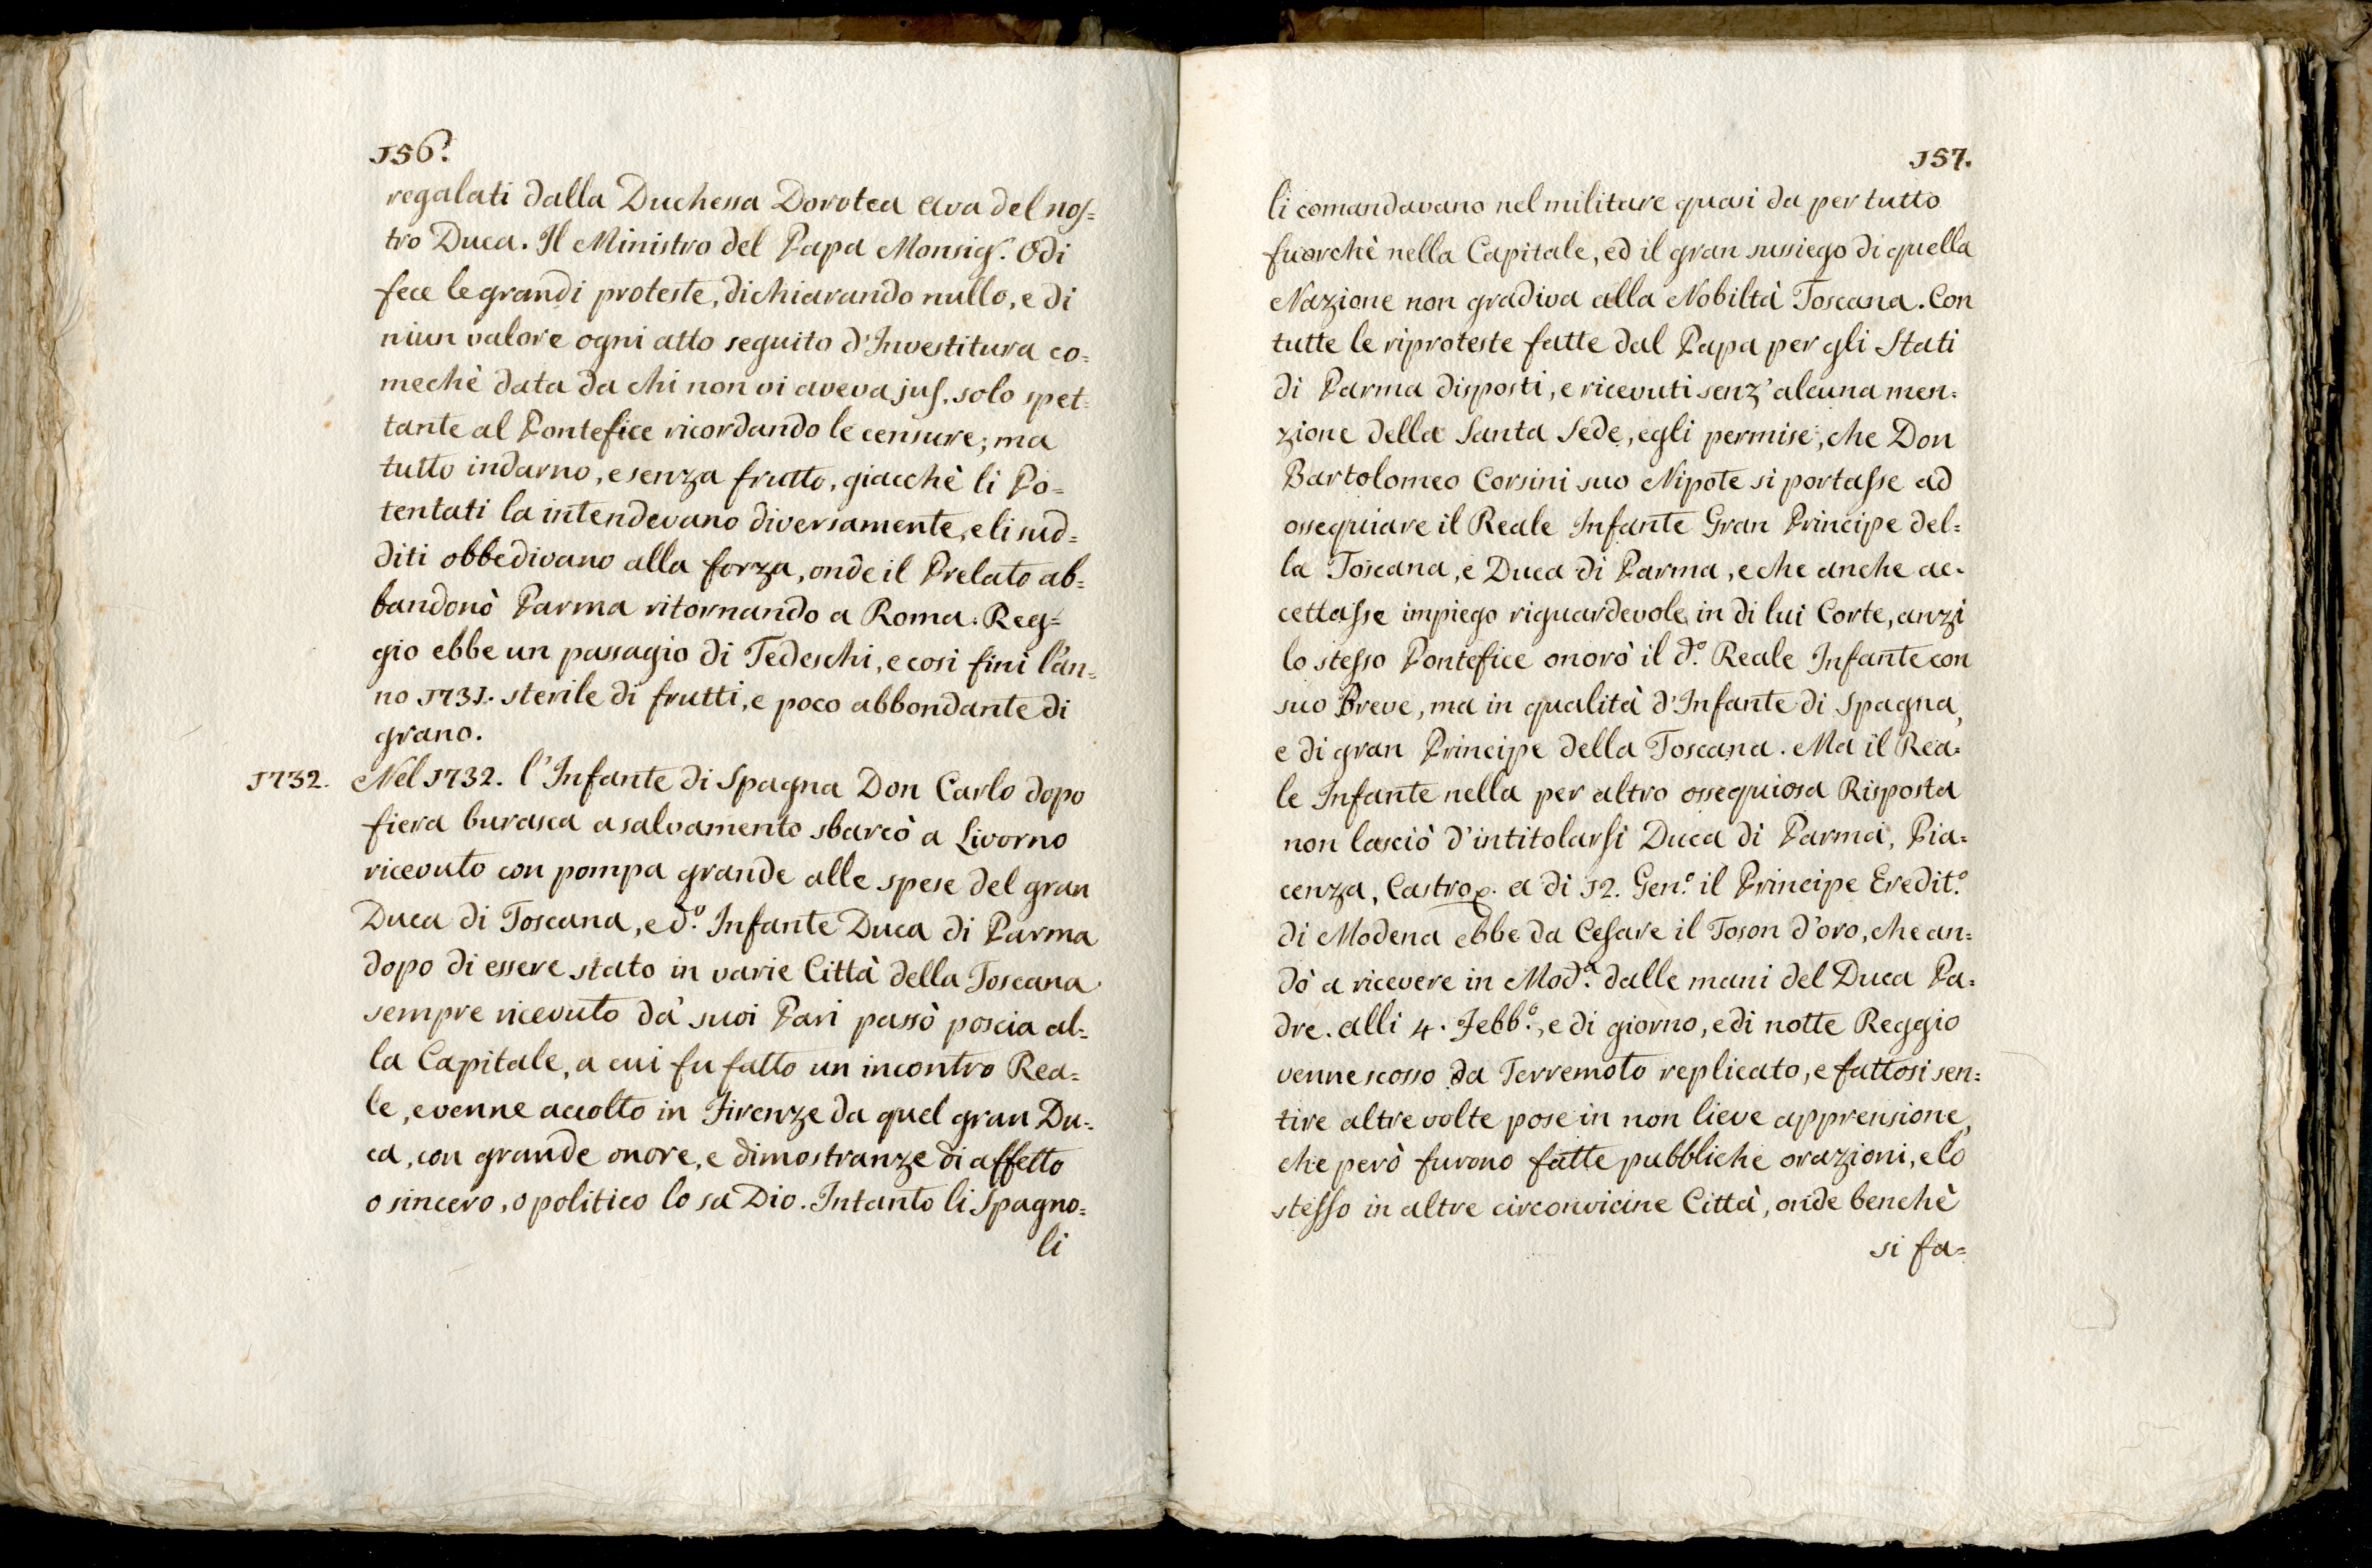 156.
regalati dalla Duchessa Dorotea Ava del nos=
tro Duca. Il Ministro del Papa Monsig.r Odi
fece le grandi proteste, dichiarando nullo, e di
niun valore ogni atto seguito d'Investitura co=
mechè data da chi non vi aveva jus, solo spet=
tante al Pontefice ricordando le censure; ma
tutto indarno, e senza frutto, giacchè li Po=
tentati la intendevano diversamente, e li sud=
diti obbedivano alla forza, onde il Prelato ab=
bandonò Parma ritornando a Roma. Reg=
gio ebbe un passagio di Tedeschi, e così finì l'an=
no 1731. sterile di frutti, e poco abbondante di
grano.
1732. Nel 1732. l'Infante di Spagna Don Carlo dopo
fiera burasca a salvamento sbarcò a Livorno
ricevuto con pompa grande alle spese del gran
Duca di Toscana, e d.o Infante Duca di Parma
dopo di essere stato in varie Città della Toscana
sempre ricevuto da' suoi Pari passò poscia al=
la Capitale, a cui fu fatto un incontro Rea=
le, e venne accolto in Firenze da quel gran Du=
ca, con grande onore, e dimostranze di affetto
o sincero, o politico lo sa Dio. Intanto li Spagno=
li
157.
li comandavano nel militare quasi da per tutto
fuorchè nella Capitale, ed il gran sussiego di quella
Nazione non gradiva alla Nobiltà Toscana. Con
tutte le riproteste fatte dal Papa per gli Stati
di Parma disposti, e ricevuti senz'alcuna men=
zione della Santa Sede, egli permise, che Don
Bartolomeo Corsini suo Nipote si portasse ad
ossequiare il Reale Infante Gran Principe del=
la Toscana, e Duca di Parma, e che anche ac=
cettasse impiego riguardevole in di lui Corte, anzi
lo stesso Pontefice onorò il d.o Reale Infante con
suo Breve, ma in qualità d'Infante di Spagna,
e di gran Principe della Toscana. Ma il Rea=
le Infante nella per altro ossequiosa Risposta
non lasciò d'intitolarsi Duca di Parma, Pia=
cenza, Castro &. a di 12. Gen.o il Principe Eredit.o
di Modena ebbe da Cesare il Toson d'oro, che an=
dò a ricevere in Mod.a dalle mani del Duca Pa=
dre. alli 4. Febb.o, e di giorno, e di notte Reggio
venne scosso da Terremoto replicato, e fattosi sen=
tire altre volte pose in non lieve apprensione,
che però furono fatte pubbliche orazioni, e lo
stesso in altre circonvicine Città, onde benchè
si fa=